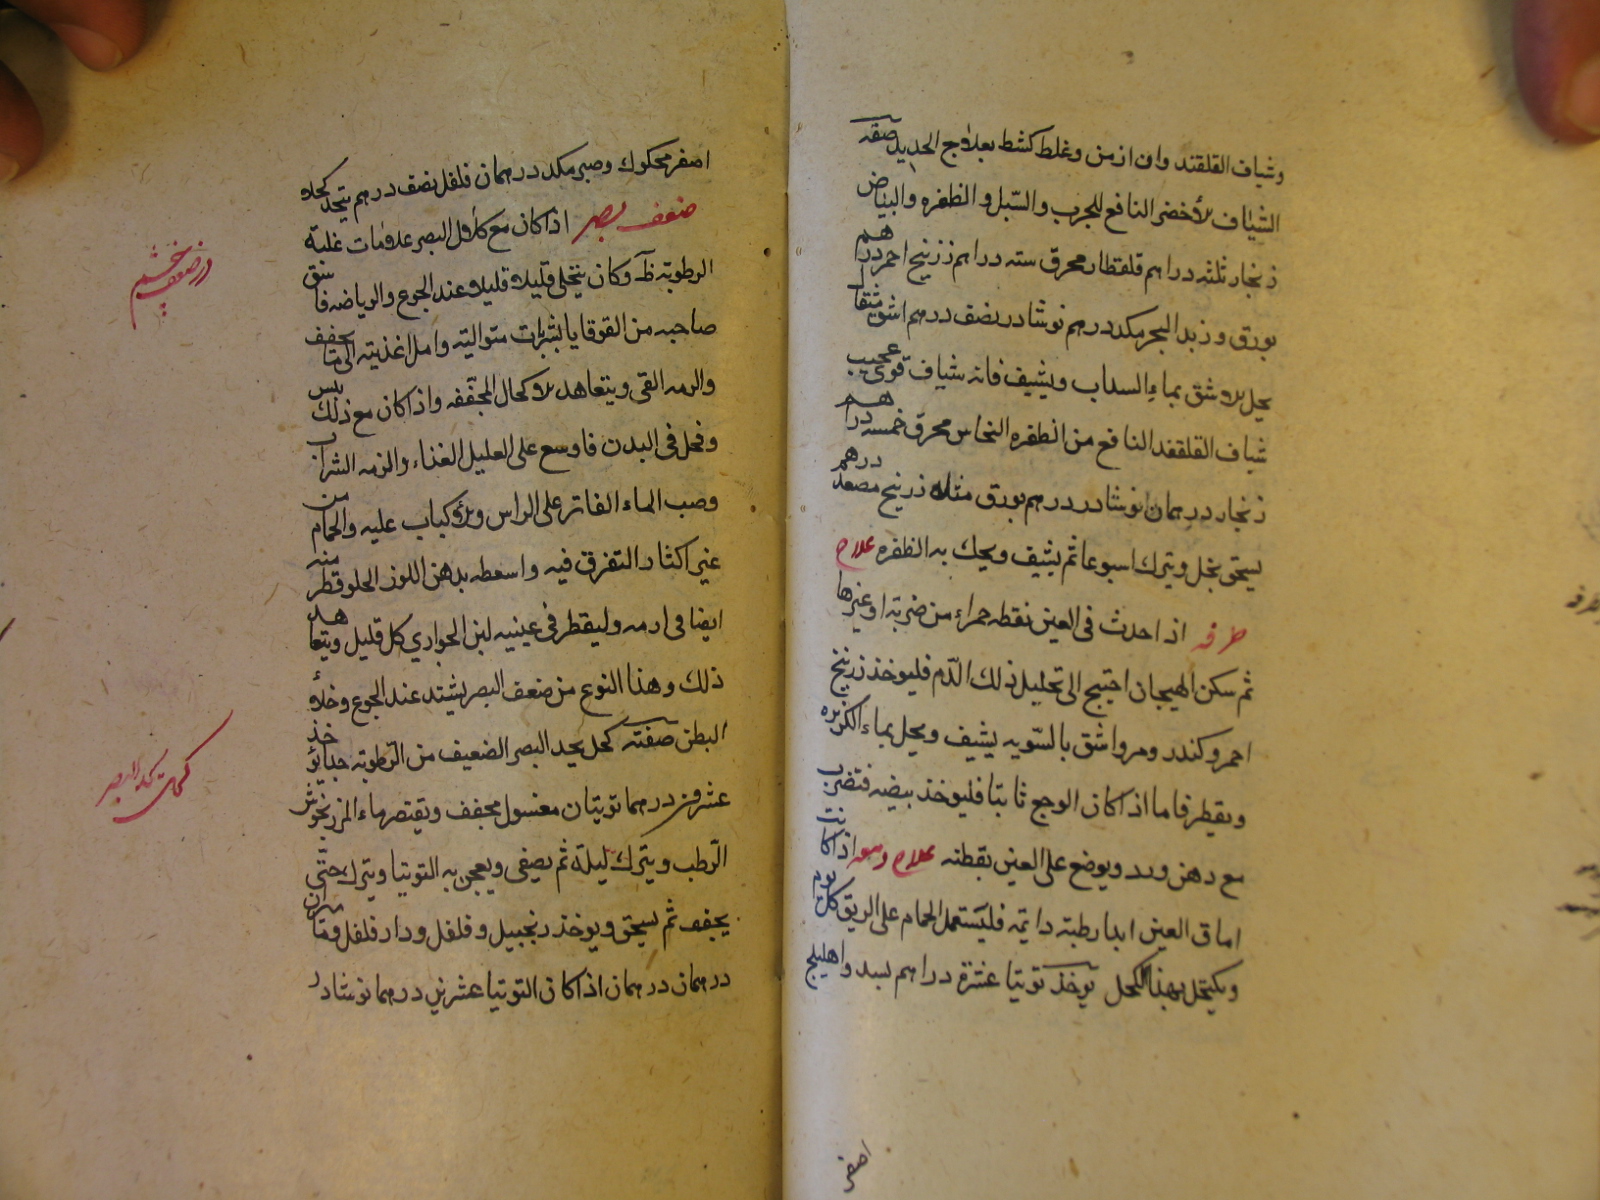 وشياف القلقند وان ازمن وغلظ كشط بعلاج الحديد صفة
الشياف الأخضر النافع للجرب والسبل والظفره والبياض
زنجار ثلثه دراهم قلقطار محرق سته دراهم زرنيخ احمر دراهم
بورق وزبد البحر مكد درهم نوشادر نصف درهم اشق مثقال
يحل الاشق بماء السداب ويشيف فانه شياف قوى عجيب
شياف القلقند النافع من الظفره النحاس محرق خمسه دراهم
زنجار درهمان نوشادر درهم بورق مثله زرنيخ مصعد درهم
يسحق بخل ويترك اسبوعا ثم يشيف ويحك به الظفره علاج
طرفه اذا حدث فى العين نقطه حمراء من ضربة اوغيرها
ثم سكن الهيجان احتيج الى تحليل ذلك الدم فليوخذ زرنيخ
احمر وكندر ومر واشق بالسويه يشيف ويحل بماء الكزبره
ويقطر فاما اذا كان الوجع ثابتا فليوخذ بيضه فتضرب
مع دهن ورد ويوضع على العين بقطنه علاج دمعه اذا كانت
اماق العين ابدا رطبة دايمه فليستعمل الحمام على الريق كل يوم
ويكتحل بهذا الكحل يوخذ توتيا عشرة دراهم بسد واهليلج
اصفر
اصفر محكوك وصبر مكد درهمان فلفل نصف درهم يتخذ كحلا
ضعف بصر اذا كان مع كلال البصر علامات غلبة
الرطوبة ظـ وكان ينحلى قليلا قليلا عند الجوع والرياضه فاسق
صاحبه من القوقايا بشربات متواليه وامل اغذيته الى ما يجفف
والزمه القى ويتعاهد الاكحال المجففه واذا كان مع ذلك يبس
وقحل فى البدن فاوسع على العليل الغذاء والزمه الشراب
وصب الماء الفاتر على الراس والاكباب عليه والحمام من
غير اكثار التعرق فيه واسعطه بدهن اللوز الحلو وقطر منه
ايضا فى ادمه وليقطر فى عينيه لبن الجوارى كل قليل ويتعاهد
ذلك وهذا النوع من ضعف البصر يشتد عند الجوع وخلاء
البطن صفته كحل يحد البصر الضعيف من الرطوبة جدا يوخذ
عشرون درهما توتيا مغسول مجفف ويعتصر ماء المرزنجوش
الرطب ويترك ليلة ثم يصفى ويعجن به التوتيا ويترك حتى
يجفف ثم يسحق ويوخذ زنجبيل وفلفل ودار فلفل وماميران
درهمان درهمان اذا كان التوتيا عشرين درهما نوشادر
در ضعف چشم